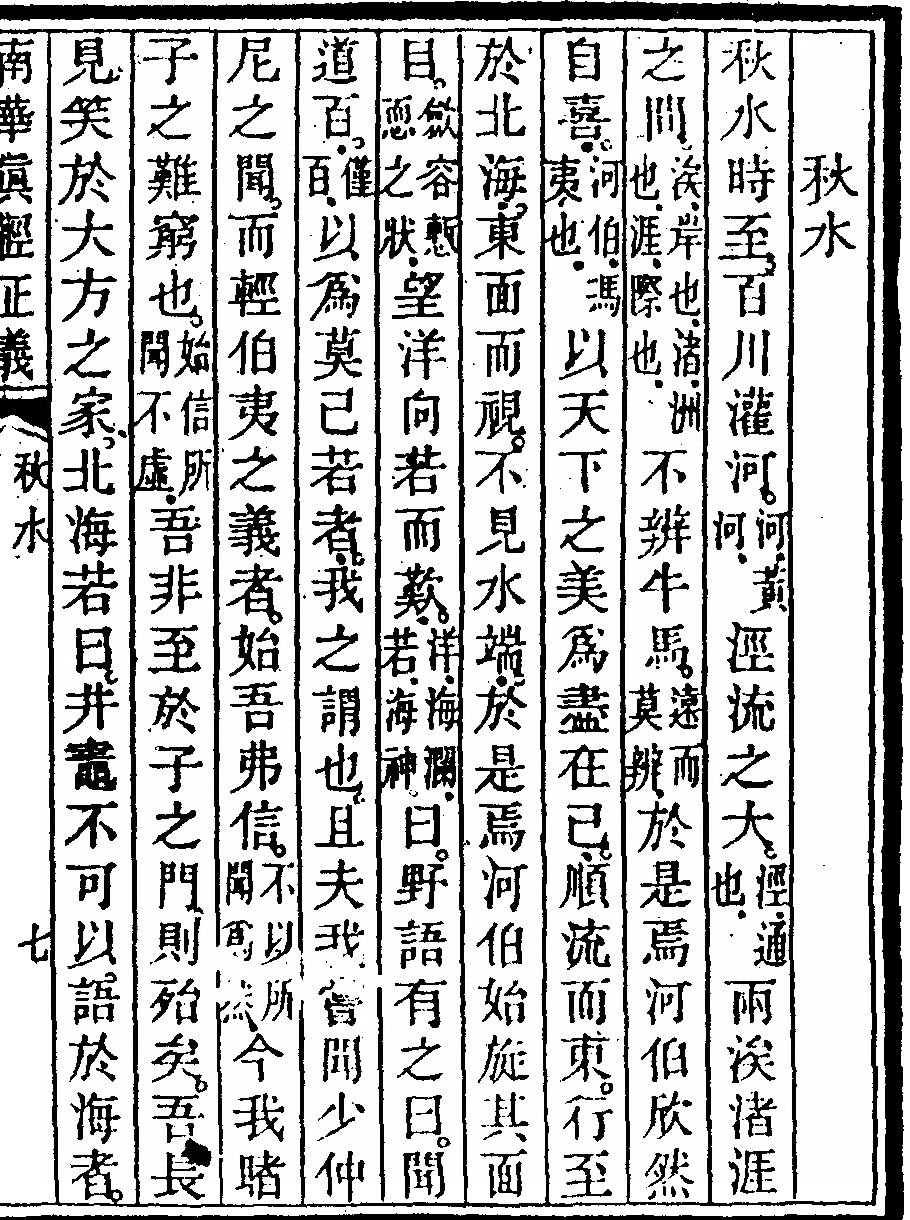 秋水
秋水時至百川灌河。河黃河涇流之大。涇通也兩涘渚涯
之間。涘岸也渚洲也涯際也不辨牛馬。遠而莫辨於是焉河伯欣然
自喜。河伯馮夷也以天下之美爲盡在己。順流而東。行至
於北海。東面而視。不見水端。於是焉河伯始旋其面
目。欿容慙恧之狀望洋向若而歎。洋海瀾若海神曰。野語有之曰。聞
道百。僅百以爲莫己若者。我之謂也。且夫我嘗聞少仲
尼之聞。而輕伯夷之義者。始吾弗信。不以所聞爲然今我睹
子之難窮也。始信所聞不虛吾非至於子之門。則殆矣。吾長
見笑於大方之家。北海若曰。井鼃不可以語於海者。
南華眞經正義 秋水 七